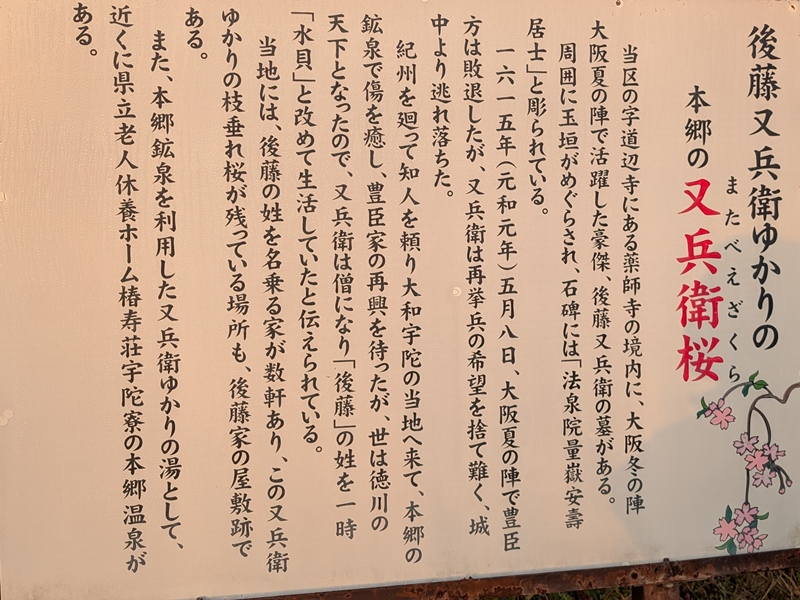 後藤又兵衛ゆかりの
またべえざくら
本郷の又兵衛桜
当区の字道辺寺にある薬師寺の境内に、大阪冬の陣
大阪夏の陣で活躍した豪傑、後藤又兵衛の墓がある。
周囲に玉垣がめぐらされ、石碑には「法泉院量嶽安壽
居士」と彫られている。
一六一五年（元和元年）五月八日、大阪夏の陣で豊臣
方は敗退したが、又兵衛は再挙兵の希望を捨て難く、城
中より逃れ落ちた。
紀州を廻って知人を頼り大和宇陀の当地へ来て、本郷の
鉱泉で傷を癒し、豊臣家の再興を待ったが、世は徳川の
天下となったので、又兵衛は僧になり「後藤」の姓を一時
「水貝」と改めて生活していたと伝えられている。
当地には、後藤の姓を名乗る家が数軒あり、この又兵衛
ゆかりの枝垂れ桜が残っている場所も、後藤家の屋敷跡で
ある。
また、本郷鉱泉を利用した又兵衛ゆかりの湯として、
近くに県立老人休養ホーム椿寿荘宇陀寮の本郷温泉が
ある。